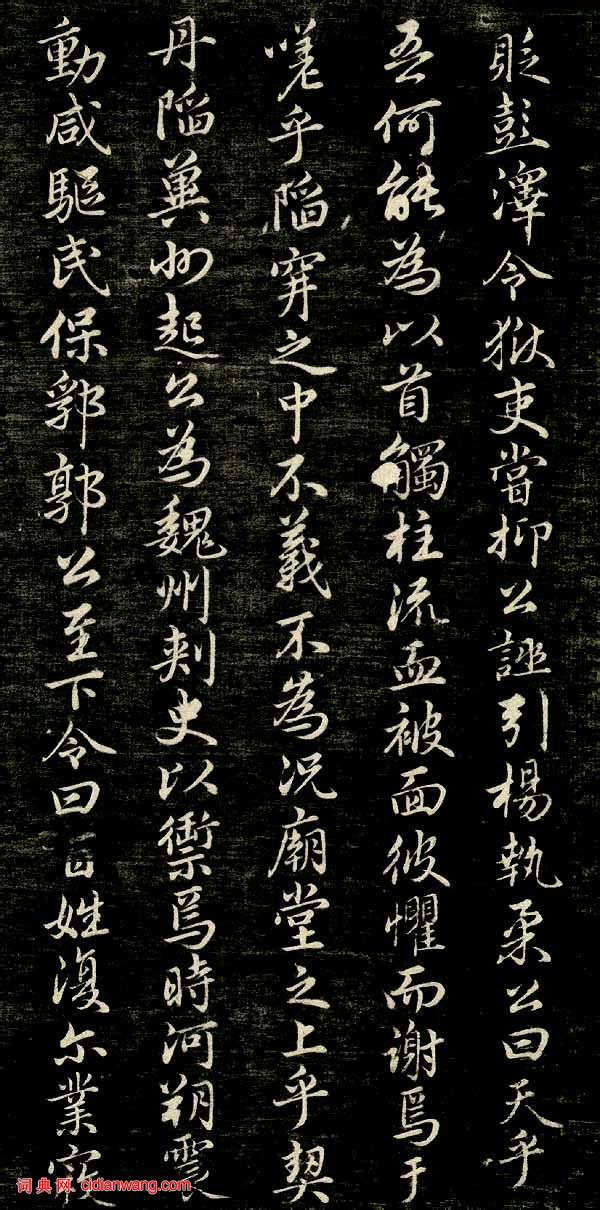 貶彭澤令獄吏嘗抑公誣引楊執柔公曰天乎
吾何能為以首觸柱流血被面彼懼而謝焉于
嗟乎陷穽之中不義不為況廟堂之上乎契
丹陷冀州起公為魏州刺史以禦焉時河朔震
動咸驅民保郛郭公至下令曰百姓復尔業寇
词典网 cidianwang.com